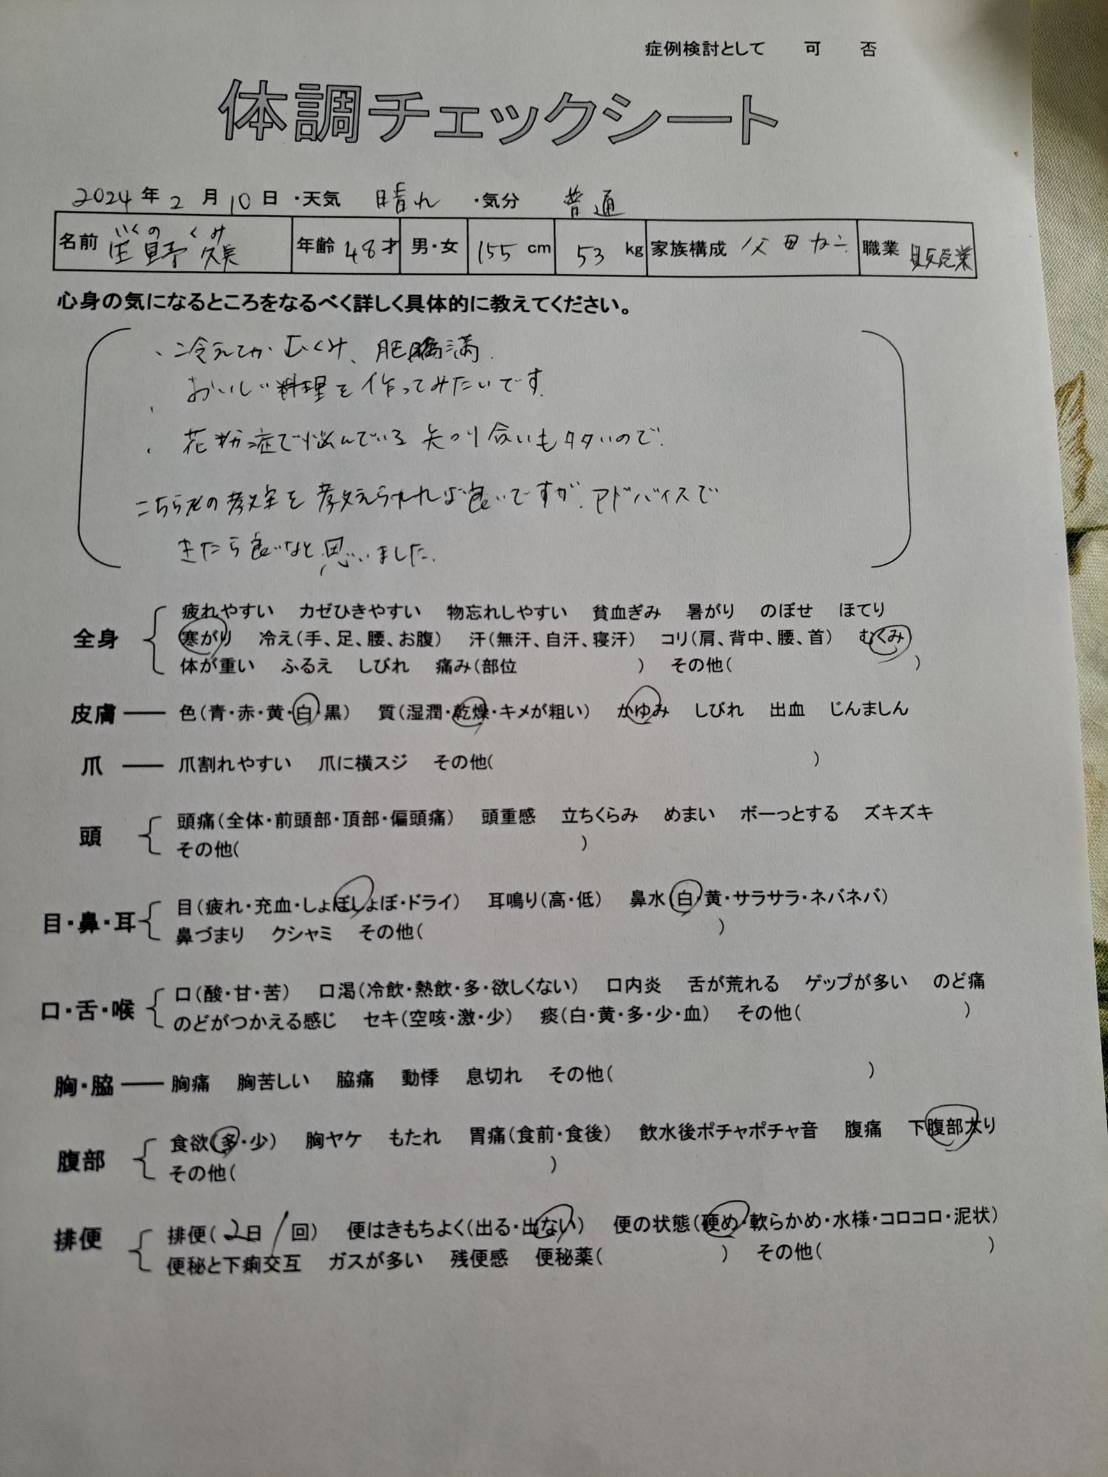 症例検討として 可 否
体調チェックシート
2024年 2月10日 ・天気 晴れ ・気分 普通
いくの くみ
名前 野 年齢 48才 男・女 155cm 53kg 家族構成 父 母 職業 販売業
心身の気になるところをなるべく詳しく具体的に教えてください。
・冷えてか むくみ、肥満
・おいしい料理を作ってみたいです。
・花粉症で悩んでいる知り合いもタタいので、
こちらの教室を教えられれば良いですが、アドバイスで
きたら良いなと思いました。
全身 疲れやすい カゼひきやすい 物忘れしやすい 貧血ぎみ 暑がり のぼせ ほてり
寒がり 冷え(手、足、腰、お腹) 汗(無汗、自汗、寝汗) コリ(肩、背中、腰、首) むくみ
体が重い ふるえ しびれ 痛み(部位 ) その他( )
皮膚 ── 色(青・赤・黄・白・黒) 質(湿潤・乾燥・キメが粗い) かゆみ しびれ 出血 じんましん
爪 ── 爪割れやすい 爪に横スジ その他( )
頭 頭痛(全体・前頭部・頂部・偏頭痛) 頭重感 立ちくらみ めまい ボーっとする ズキズキ
その他( )
目・鼻・耳 目(疲れ・充血・しょぼしょぼ・ドライ) 耳鳴り(高・低) 鼻水(白・黄・サラサラ・ネバネバ)
鼻づまり クシャミ その他( )
口・舌・喉 口(酸・甘・苦) 口渇(冷飲・熱飲・多・欲しくない) 口内炎 舌が荒れる ゲップが多い のど痛
のどがつかえる感じ セキ(空咳・激・少) 痰(白・黄・多・少・血) その他( )
胸・脇 ── 胸痛 胸苦しい 脇痛 動悸 息切れ その他( )
腹部 食欲(多・少) 胸ヤケ もたれ 胃痛(食前・食後) 飲水後ポチャポチャ音 腹痛 下腹部太り
その他( )
排便 排便(2日/回) 便はきもちよく(出る・出ない) 便の状態(硬め・軟らかめ・水様・コロコロ・泥状)
便秘と下痢交互 ガスが多い 残便感 便秘薬( ) その他( )